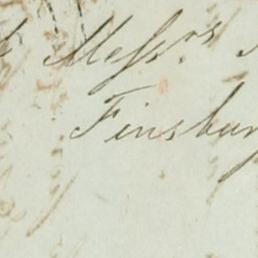 Messrs.
Finsbury